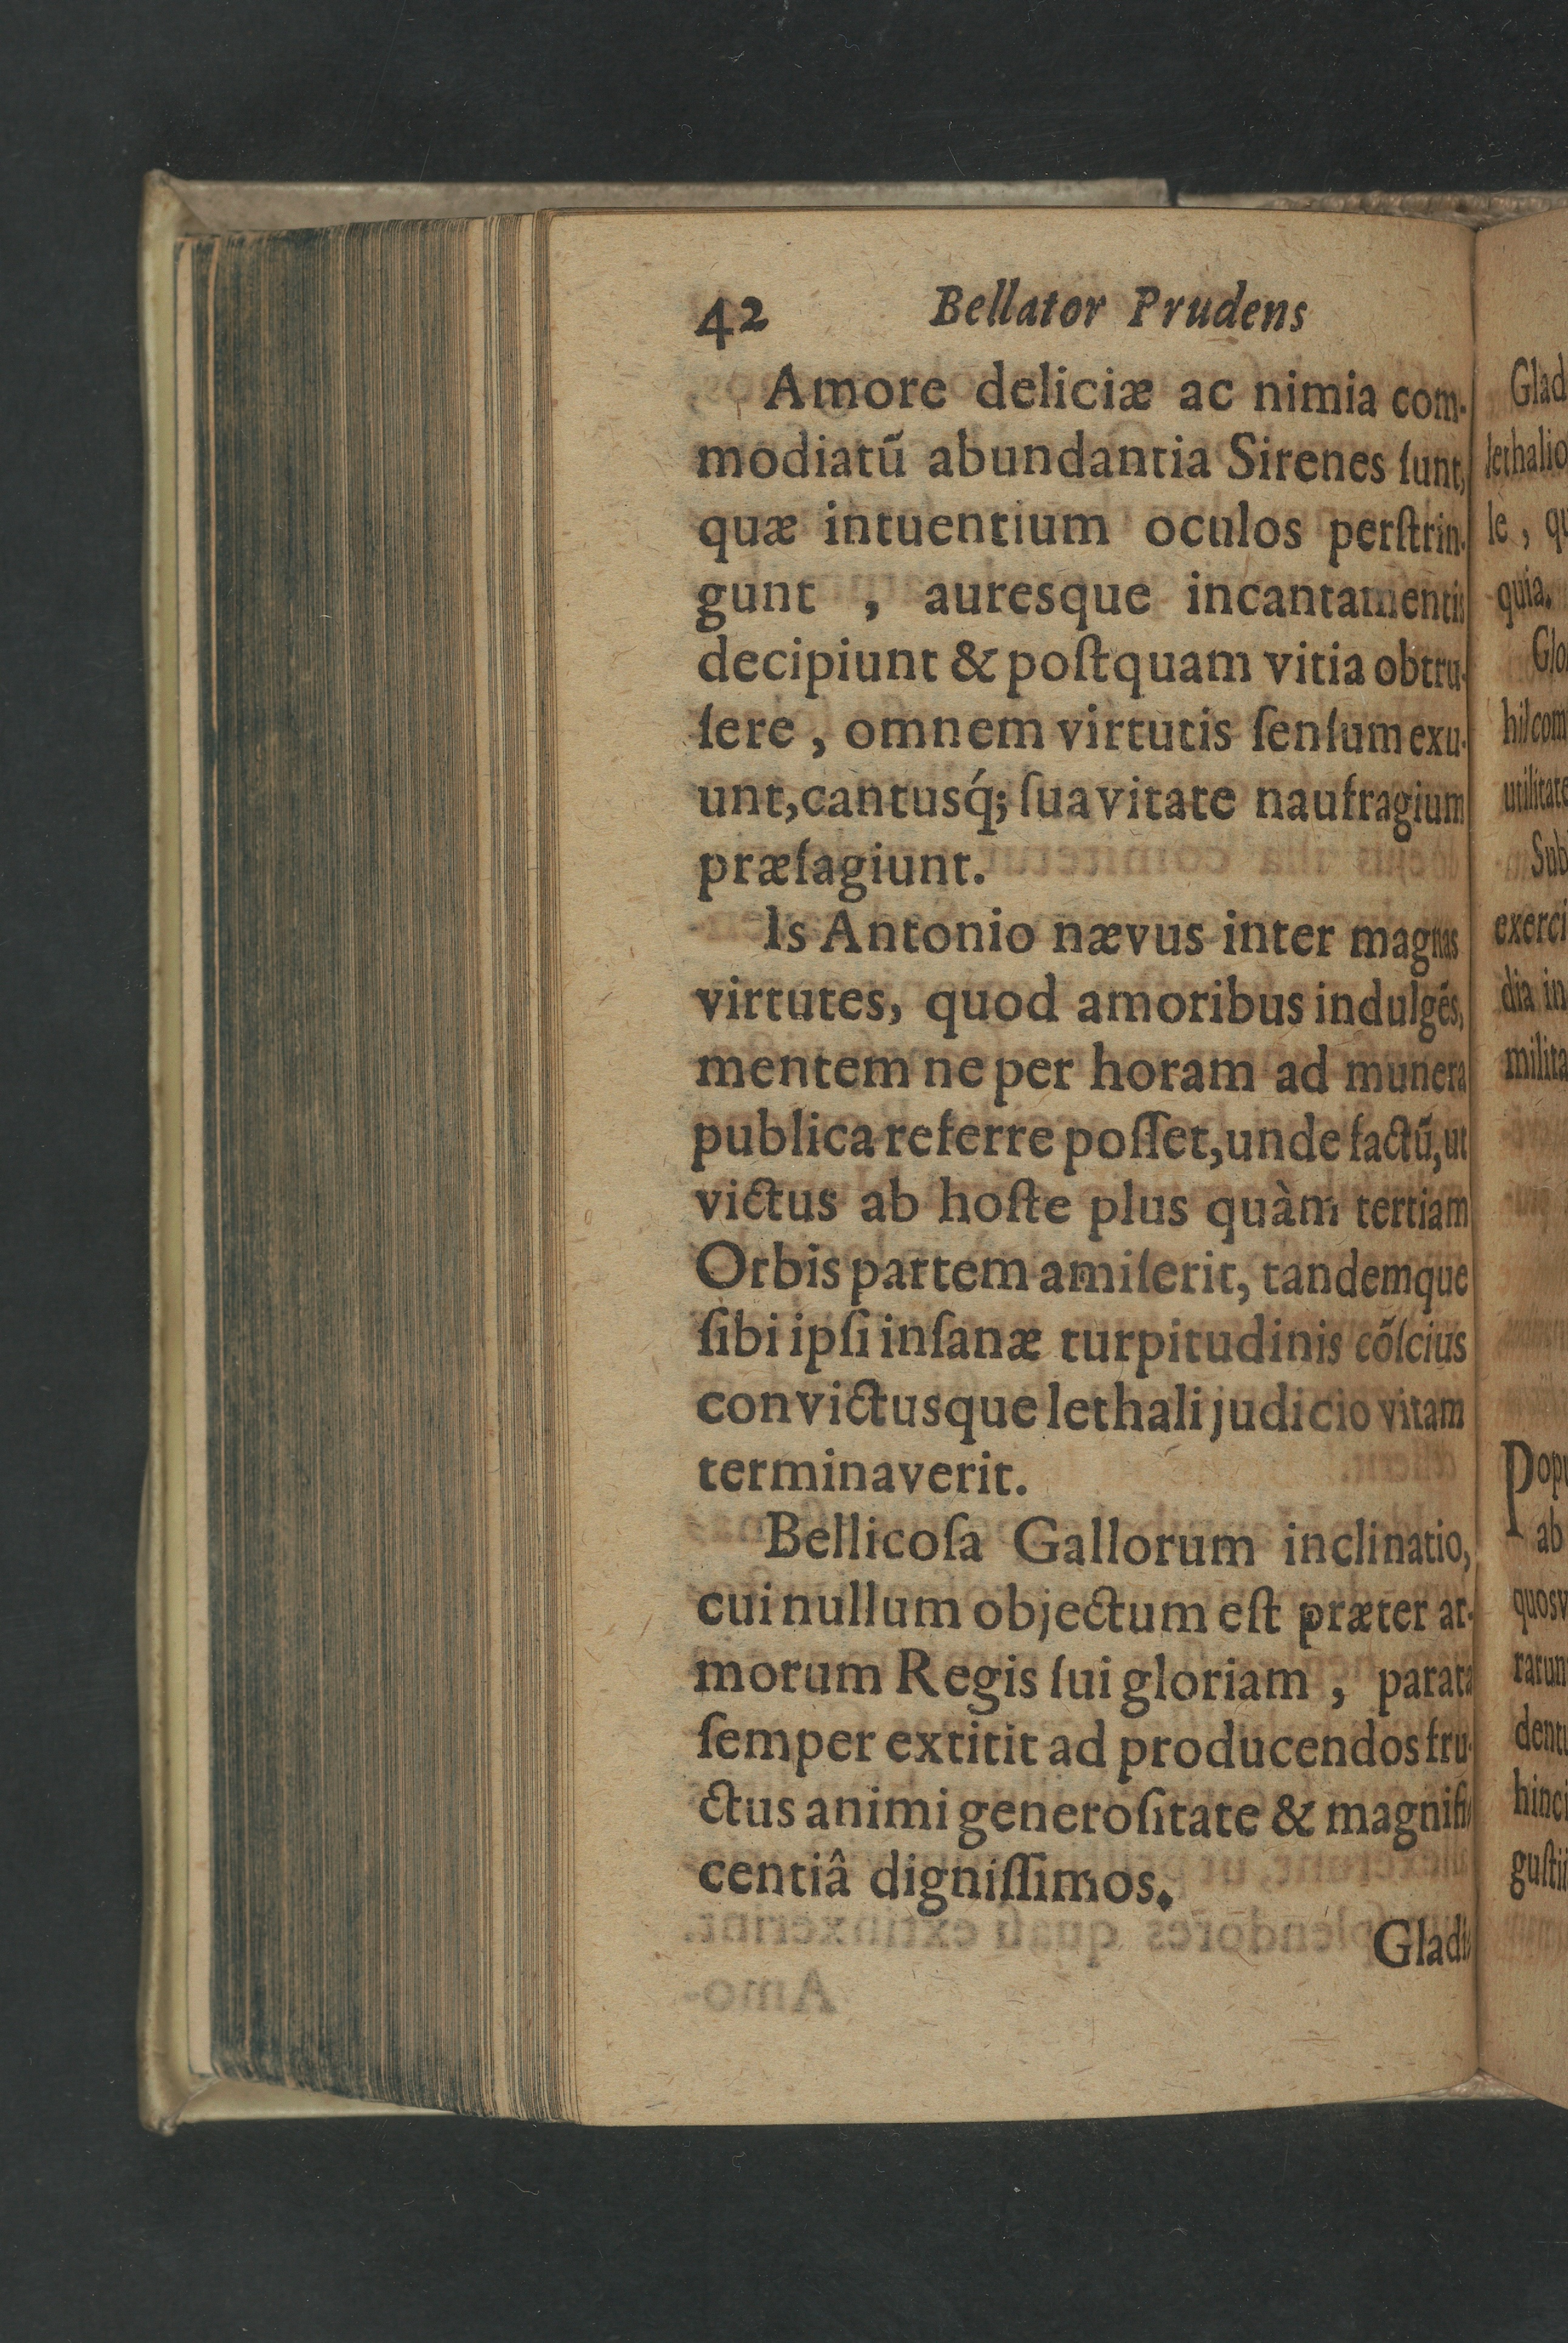 42 Bellator Prudens
Amore deliciæ ac nimia com-
modiatũ abundantia Sirenes ſunt,
quæ intuentium oculos perſtrin-
gunt , auresque incantamentis
decipiunt & poſtquam vitia obtru-
ſere , omnem virtutis ſenſum exu-
unt, cantusq́; ſuavitate naufragium
præſagiunt.
Is Antonio nævus inter magnas
virtutes, quod amoribus indulgẽs,
mentem ne per horam ad munera
publica referre poſſet, unde factũ, ut
victus ab hoſte plus quàm tertiam
Orbis partem amiſerit, tandemque
ſibi ipſi inſanæ turpitudinis cõſcius
convictusque lethali judicio vitam
terminaverit.
Bellicoſa Gallorum inclinatio,
cui nullum objectum eſt præter ar-
morum Regis ſui gloriam , parata
ſemper extitit ad producendos fru-
ctus animi generoſitate & magnifi-
centiâ digniſſimos.
Gladi-
Glad
lethalio
le , qu
quia.
Glo
hil com
utilitate
Sub
exerci
dia in
milita
Popu
ab
quosv
rarun
denti
hinci
guſtii